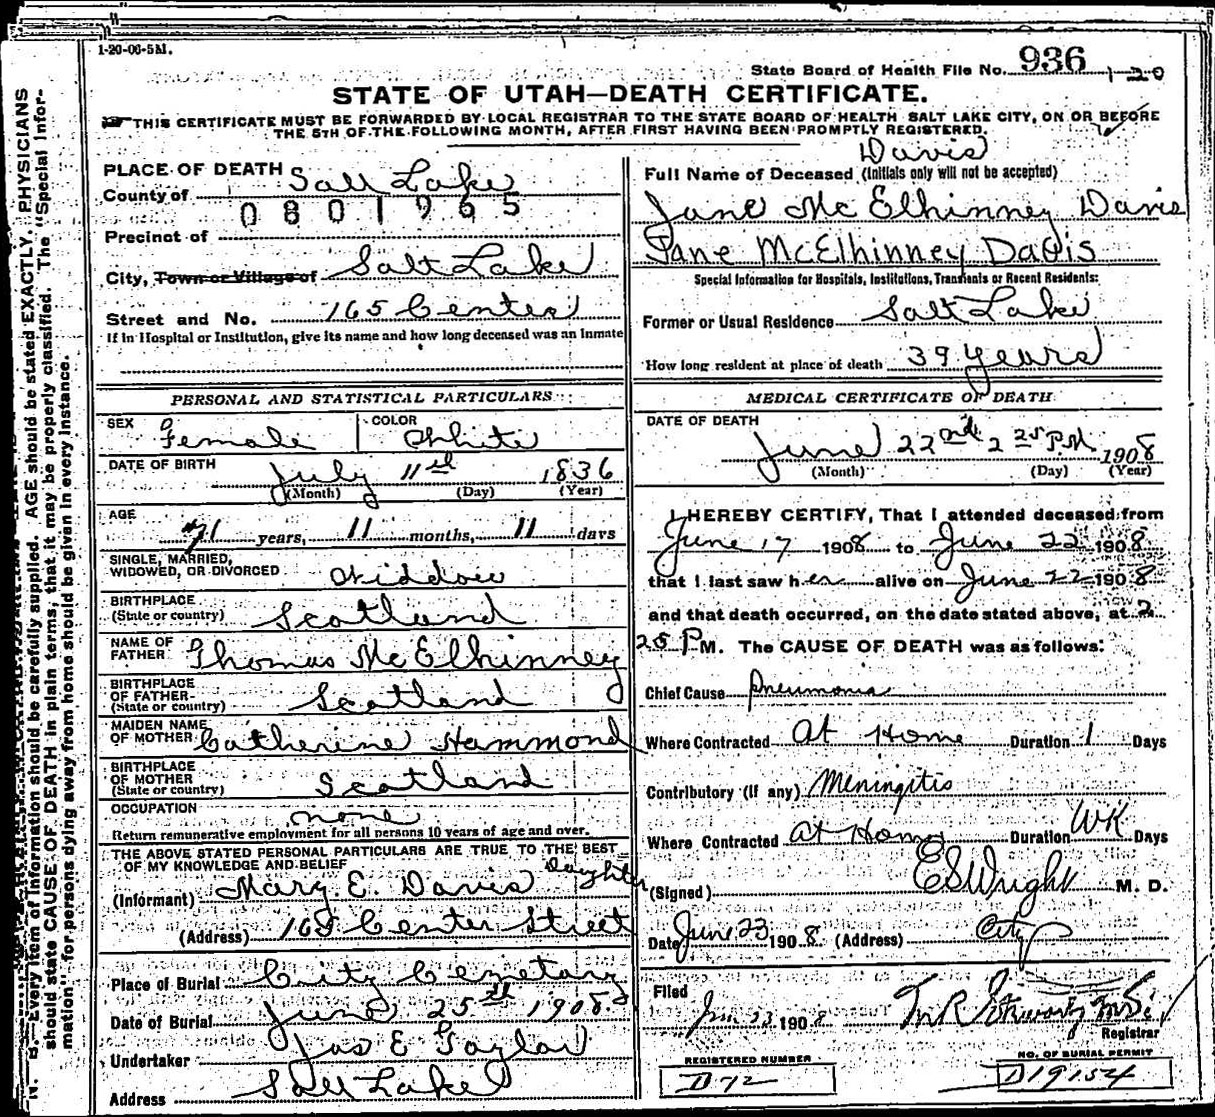 1-20-06-5M.
State Board of Health File No. 936 1-20
STATE OF UTAH—DEATH CERTIFICATE.
THIS CERTIFICATE MUST BE FORWARDED BY LOCAL REGISTRAR TO THE STATE BOARD OF HEALTH SALT LAKE CITY, ON OR BEFORE
THE 5TH OF THE FOLLOWING MONTH, AFTER FIRST HAVING BEEN PROMPTLY REGISTERED.
PLACE OF DEATH
County of Salt Lake
0801965
Precinct of
City, Town or Village of Salt Lake
Street and No. 165 Center
If in Hospital or Institution, give its name and how long deceased was an inmate
PERSONAL AND STATISTICAL PARTICULARS
SEX Female COLOR White
DATE OF BIRTH July 11th 1836
(Month) (Day) (Year)
AGE 71 years, 11 months, 11 days
SINGLE, MARRIED,
WIDOWED, OR DIVORCED Widdow
BIRTHPLACE
(State or country) Scotland
NAME OF
FATHER Thomas McElhinney
BIRTHPLACE
OF FATHER
(State or country) Scotland
MAIDEN NAME
OF MOTHER Catherine Hammond
BIRTHPLACE
OF MOTHER
(State or country) Scotland
OCCUPATION none
Return remunerative employment for all persons 10 years of age and over.
THE ABOVE STATED PERSONAL PARTICULARS ARE TRUE TO THE BEST
OF MY KNOWLEDGE AND BELIEF
(Informant) Mary E. Davis Daughter
(Address) 165 Center Street
Place of Burial City Cemetary
Date of Burial June 25th 1908
Undertaker Jos E Taylor
Address Salt Lake
Davis
Full Name of Deceased (Initials only will not be accepted)
Jane McElhinney Davis
Jane McElhinney Davis
Special Information for Hospitals, Institutions, Transients or Recent Residents:
Former or Usual Residence Salt Lake
How long resident at place of death 39 Years
MEDICAL CERTIFICATE OF DEATH
DATE OF DEATH
June 22nd 2 25 P.M. 1908
(Month) (Day) (Year)
I HEREBY CERTIFY, That I attended deceased from
June 17 1908 to June 22 1908
that I last saw her alive on June 22 1908
and that death occurred, on the date stated above, at 2
25 P M. The CAUSE OF DEATH was as follows:
Chief Cause Pneumonia
Where Contracted At Home Duration 1 Days
Contributory (if any) Meningitis
Where Contracted At Home Duration WK Days
(Signed) E S Wright M. D.
Date June 23 1908 (Address) City
Filed
23 1908
Registrar
REGISTERED NUMBER
D 72
NO. OF BURIAL PERMIT
D19154
N. B.—Every item of information should be carefully supplied. AGE should be stated EXACTLY. PHYSICIANS
should state CAUSE OF DEATH in plain terms, that it may be properly classified. The "Special Infor-
mation" for persons dying away from home should be given in every instance.